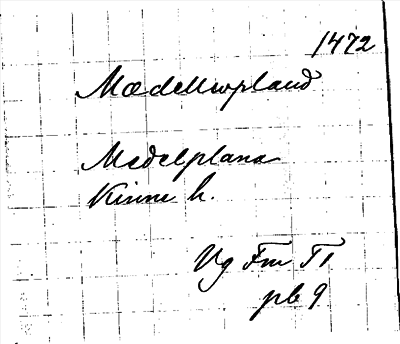 1472
Mædellwpland
Medelplana
Kinne h.
Vg Fm II
pb 9